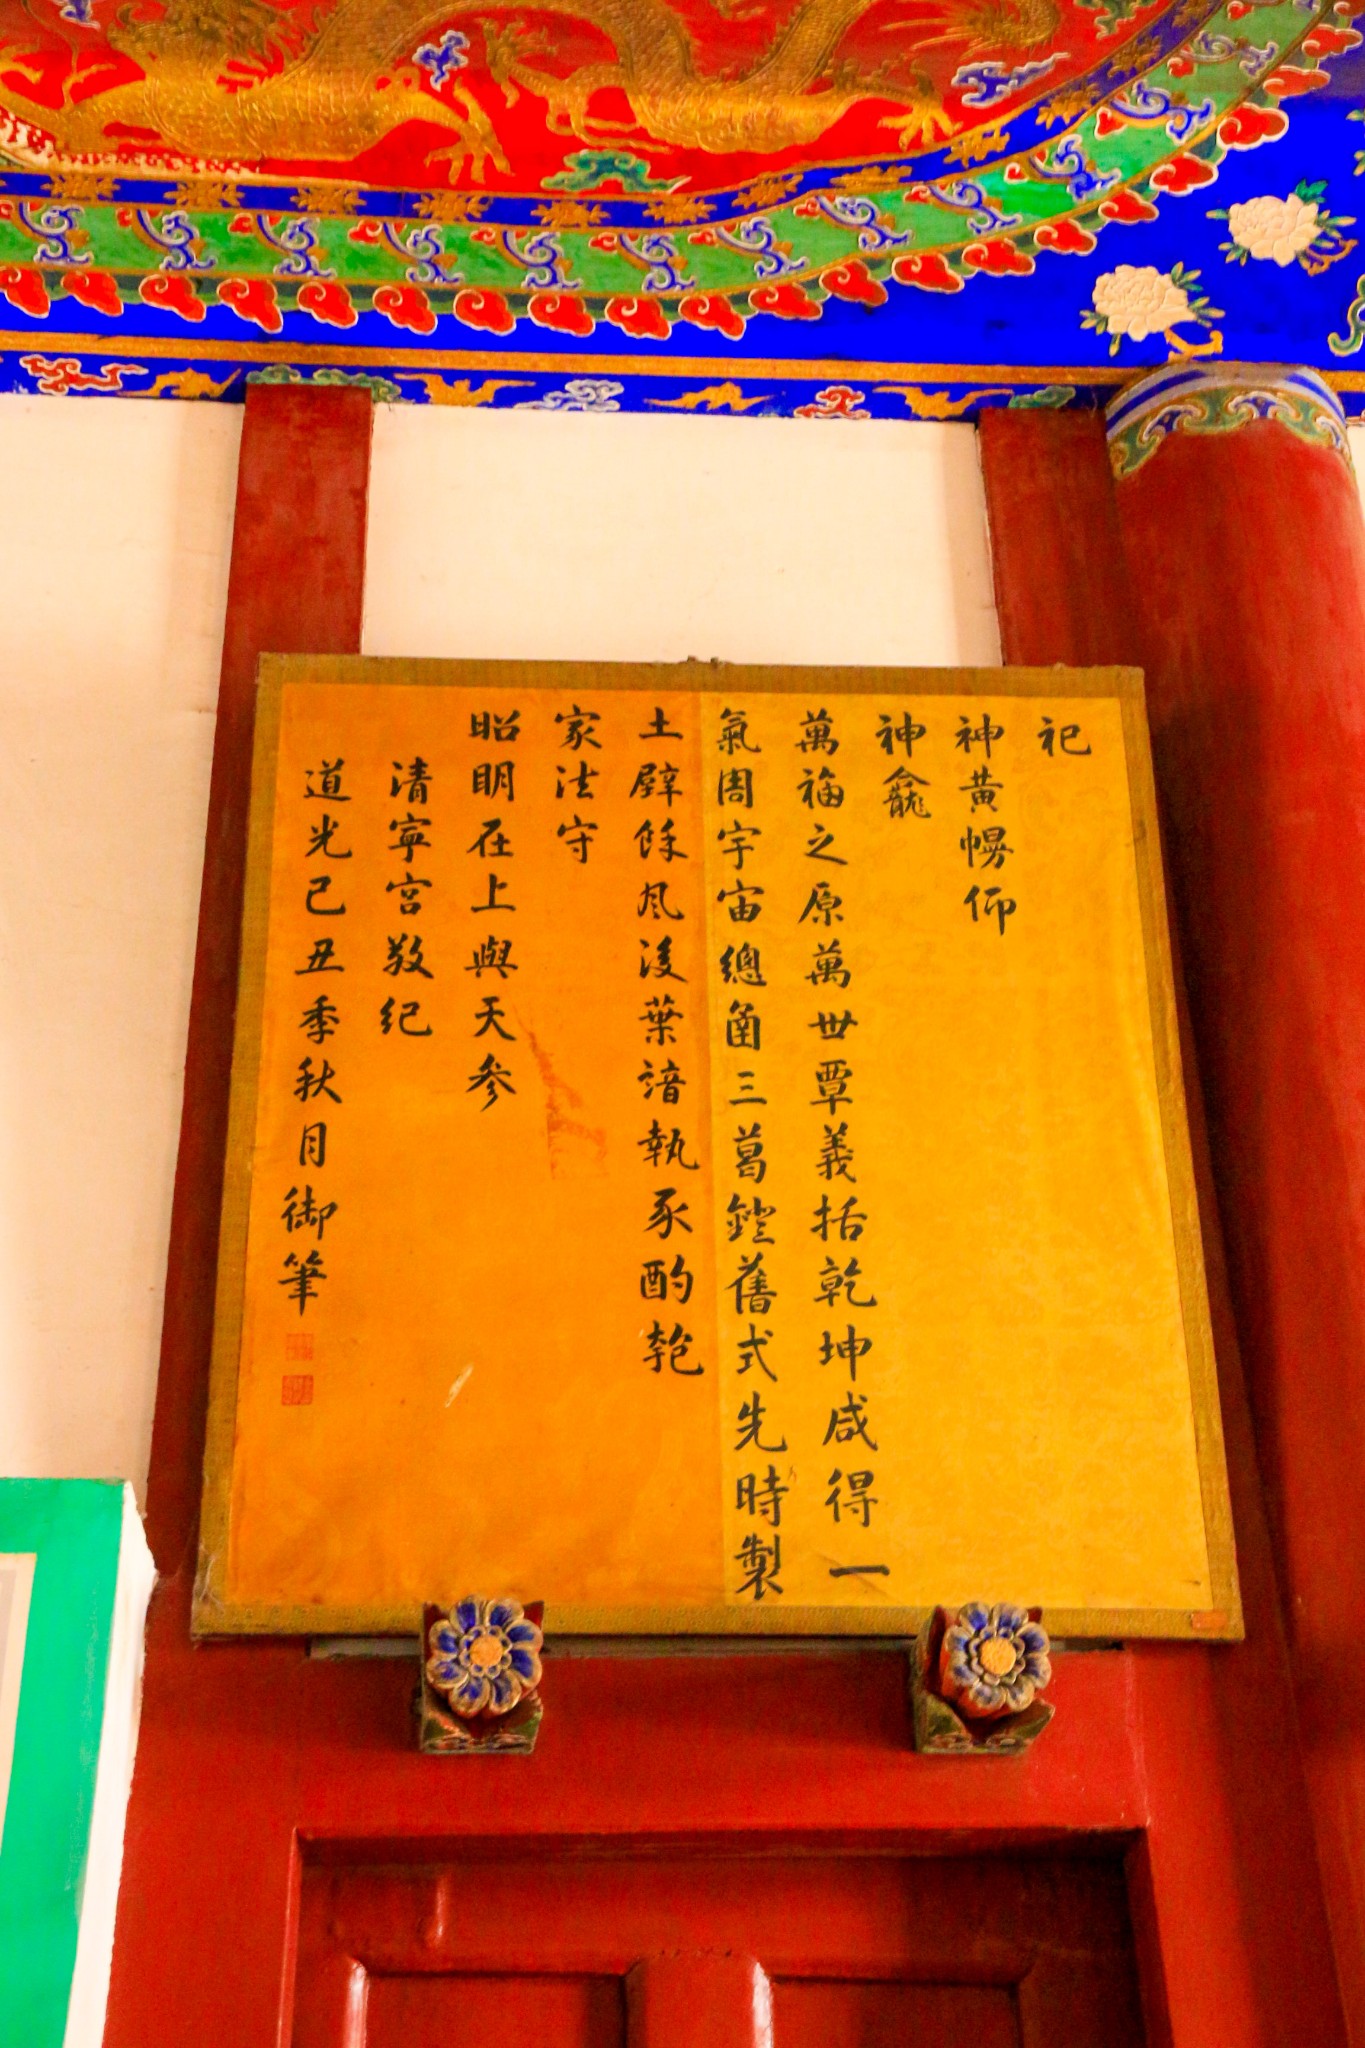 祀
神黃幌仰
神龕
萬福之原萬世覃義括乾坤咸得一
氣周宇宙總函三葛鐙舊式先時製
土壁餘風後葉諳執豕酌匏
家法守
昭明在上與天參
清寧宮敬紀
道光己丑季秋月御筆